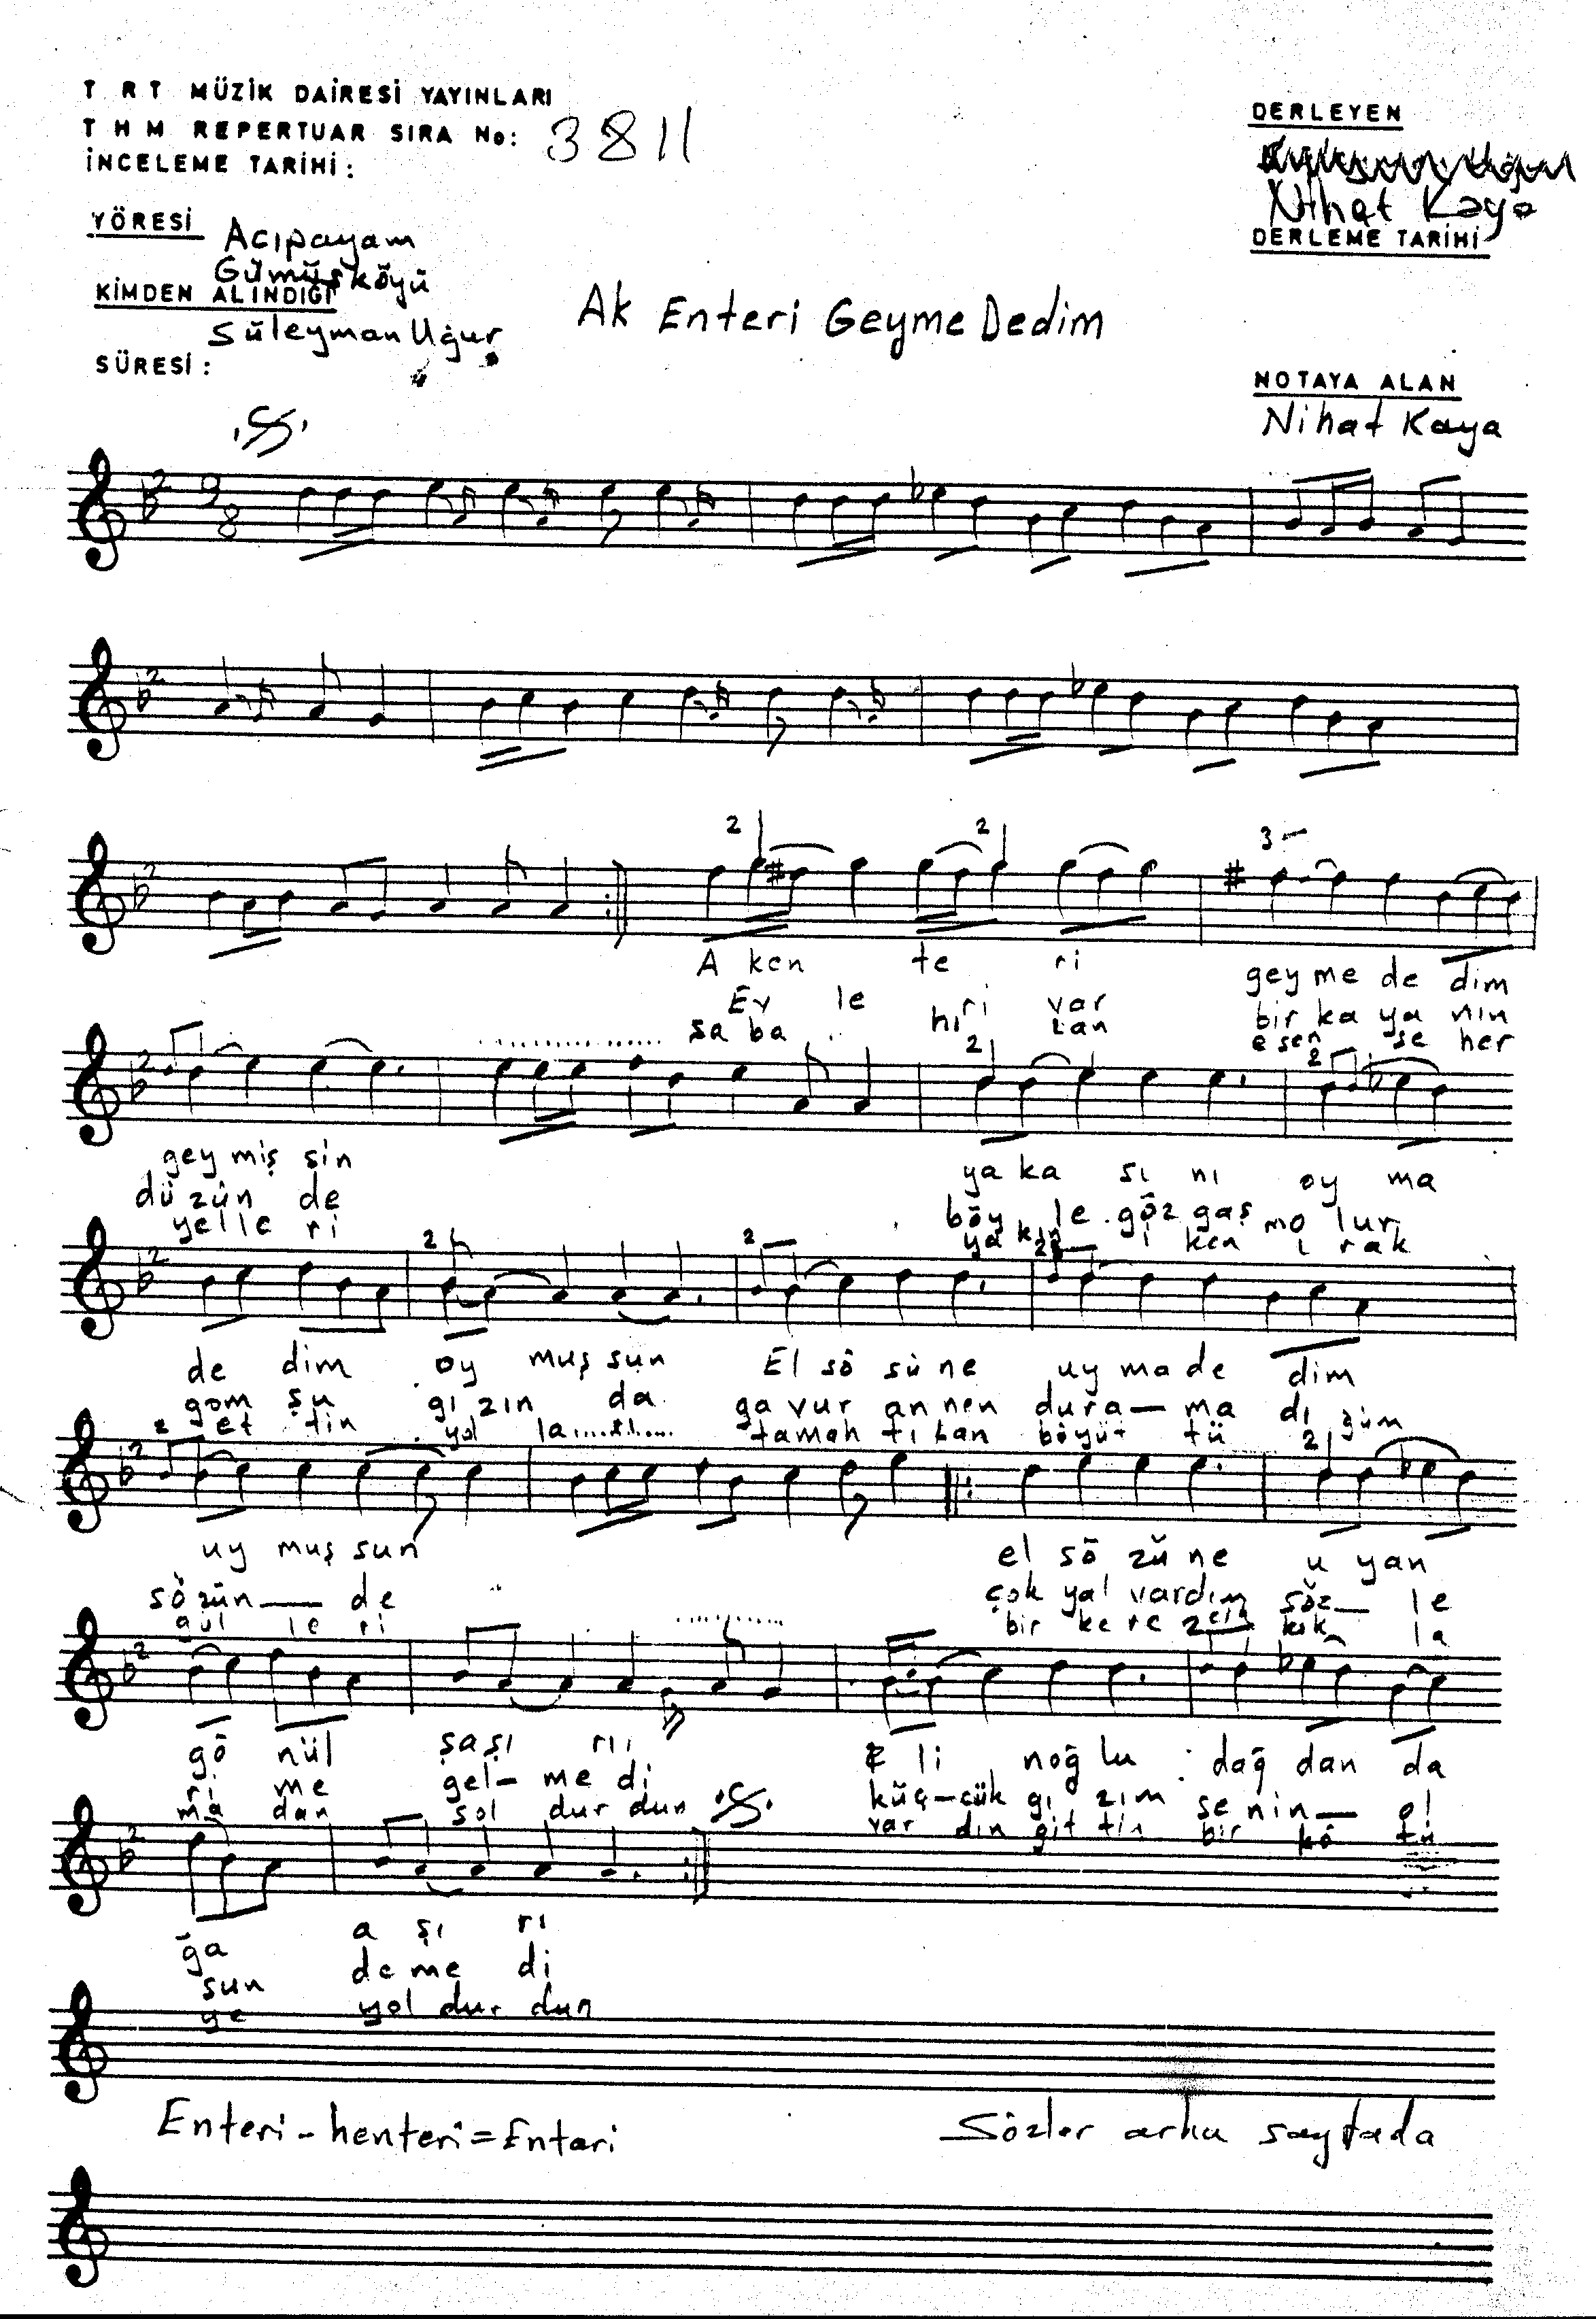 T R T MÜZİK DAİRESİ YAYINLARI
T H M REPERTUAR SIRA No: 3811
İNCELEME TARİHİ:
DERLEYEN
Nihat Kaya
DERLEME TARİHİ
YÖRESİ Acıpayam
Gümüşköyü
KİMDEN ALINDIĞI
Süleyman Uğur
SÜRESİ:
Ak Enteri Geyme Dedim
NOTAYA ALAN
Nihat Kaya
2 9 8
2
2 2 2 3
A ken te ri gey me de dim
Ev le ri var bir ka ya nın
sa ba hı tan esen se her
2 2 2
gey miş sin ya ka sı nı oy ma
dü zün de böy le göz gaş mo lur
yel le ri ya kın i ken ı rak
2 2 2 2
de dim oy muş sun El sö sü ne uy ma de dim
gom şu gı zın da ga vur an nen dura— ma dı
et tin yol la tamah tı böyüt tü
2 2 2
uy muş sun el sö zü ne u yan
sö zün— de çok yal vardım söz— le
gül le ri bir ke re kık la
2
gö nül şaşı rıı E li noğ lu dağ dan da
ri me gel— me di küç—cük gı zım se nin— ol
ma dan sol dur dun var dın git tin bir kö tü
2
ğa a şı rı
sun de me di
ye yol dur dun
Enteri - henteri = Entari
Sözler arka sayfada